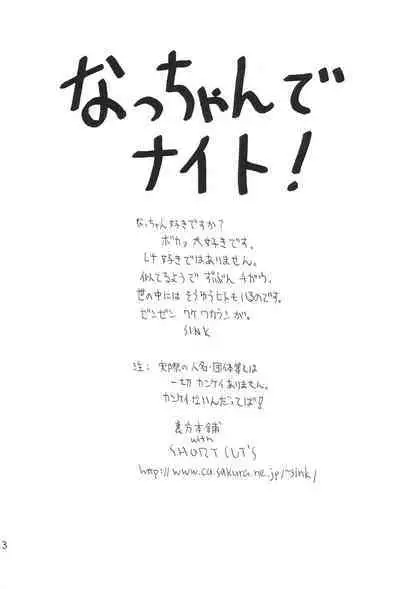 なっちゃんで
ナイト!
なっちゃん好きですか?
ボカァ 大好きです。
レナ好きではありません。
似てるようで ずいぶん チガウ。
世の中には そうゆうヒトも いるのです。
ゼンゼン ワケ ワカラン が。
SINK
注: 実際の人名・団体等とは
一切 カンケイ ありません。
カンケイ ないんだってば!
裏方本舗
with
SHORT CUT'S
http://www.ca.sakura.ne.jp/~sink/
3